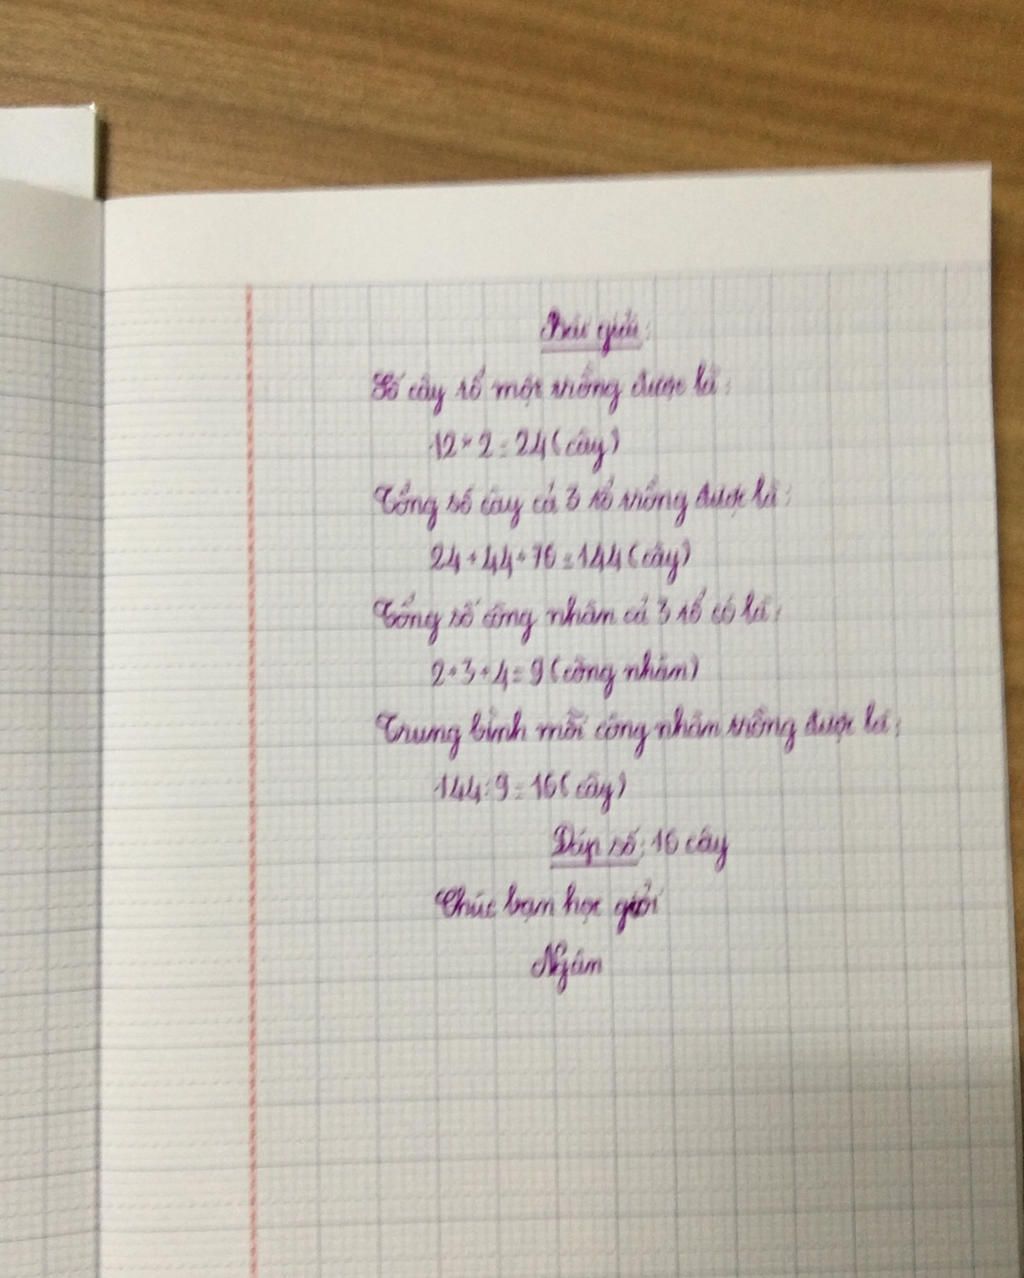 Bài giải:
Số cây tổ một trồng được là:
12 × 2 = 24 (cây)
Tổng số cây cả 3 tổ trồng được là:
24 + 44 + 76 = 144 (cây)
Tổng số công nhân cả 3 tổ có là:
2 + 3 + 4 = 9 (công nhân)
Trung bình mỗi công nhân trồng được là:
144 : 9 = 16 (cây)
Đáp số: 16 cây
Chúc bạn học giỏi
Ngân